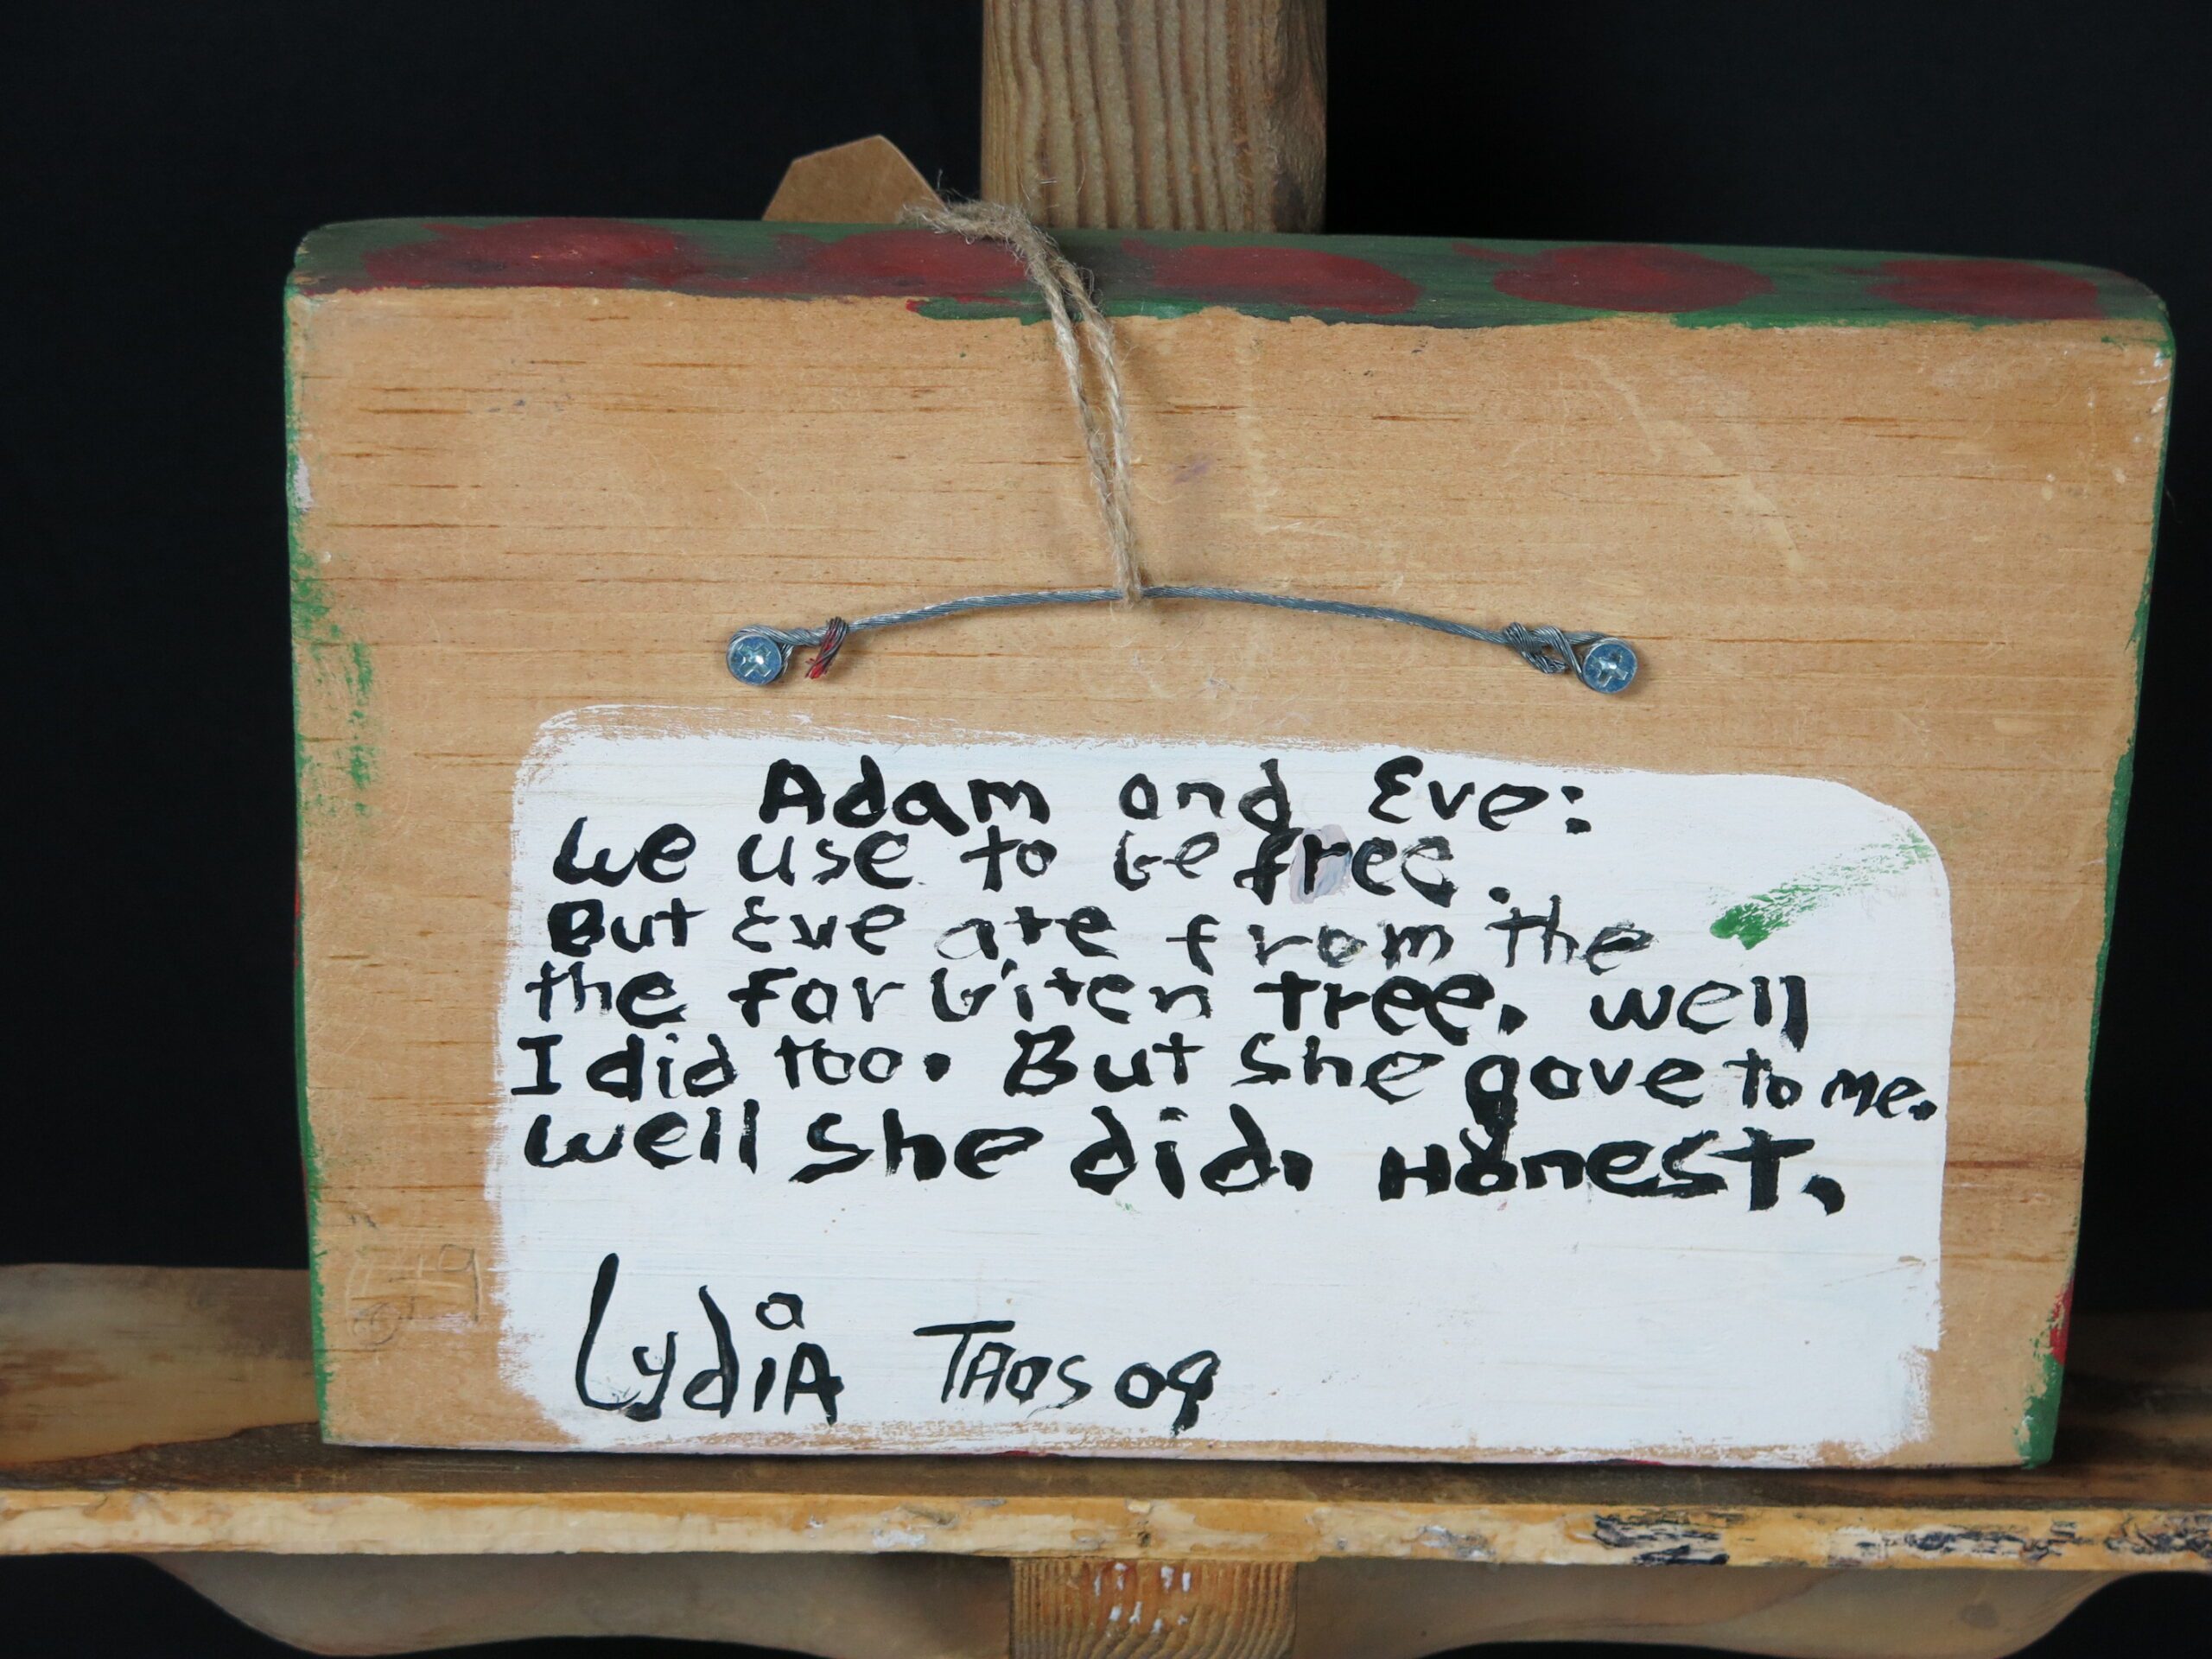 Adam and Eve:
We use to be free.
But Eve ate from the
the forbiten tree. well
I did too. But she gave to me.
well she did. Honest.
Lydia Taos 09